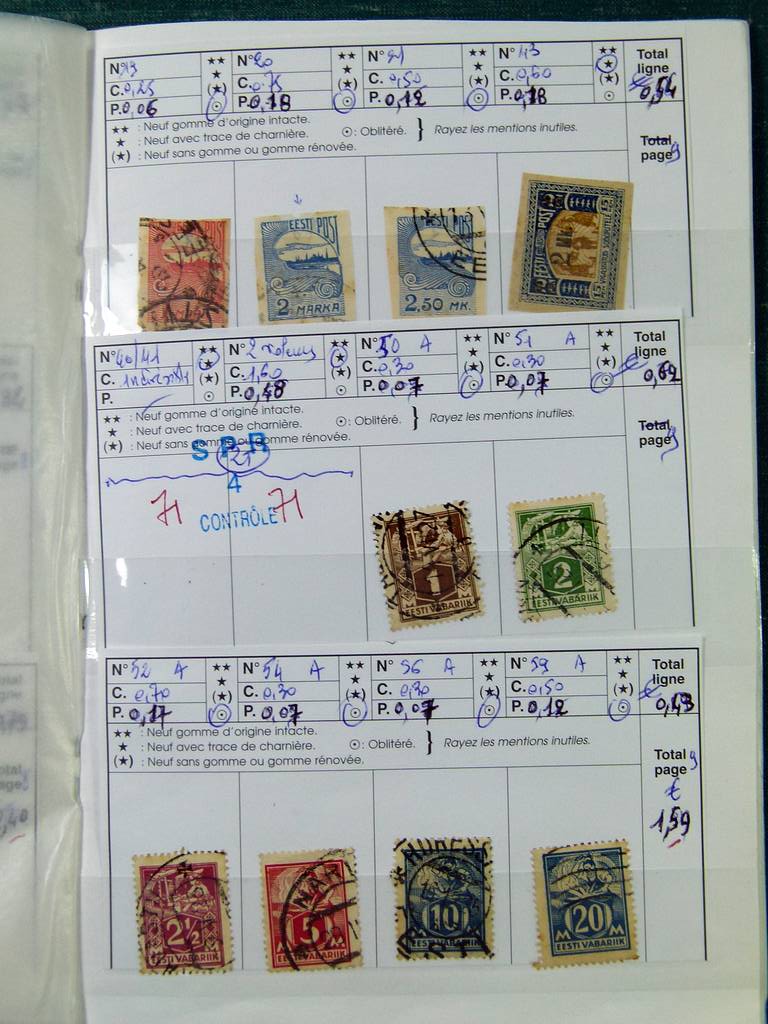 N° 19 ★★ N° 20 ★★ N° 21 ★★ N° 43 ★★ Total ligne
C. 0,25 ★ (★) C. 0,75 ★ (★) C. 0,50 ★ (★) C. 0,60 ★ (★)
P. 0,06 ⊙ P. 0,18 ⊙ P. 0,12 ⊙ P. 0,18 ⊙ 0,54
★★ : Neuf gomme d'origine intacte.
★ : Neuf avec trace de charnière. ⊙: Oblitéré. } Rayez les mentions inutiles.
(★) : Neuf sans gomme ou gomme rénovée.
Total page
EESTI POST
2 MARKA
2,50 MK.
EESTI POST
15
N° 40/41 ★★ N° 2 valeurs ★★ N° 50 A ★★ N° 51 A ★★ Total ligne
C. ★ (★) C. 1,60 ★ (★) C. 0,30 ★ (★) C. 0,30 ★ (★)
P. ⊙ P. 0,48 ⊙ P. 0,07 ⊙ P. 0,07 ⊙ € 0,62
★★ : Neuf gomme d'origine intacte.
★ : Neuf avec trace de charnière. ⊙: Oblitéré. } Rayez les mentions inutiles.
(★) : Neuf sans gomme ou gomme rénovée.
Total page
S P R
21
4
71 CONTRÔLE 71
1
EESTI VABARIIK
2
EESTI VABARIIK
N° 52 A ★★ N° 54 A ★★ N° 56 A ★★ N° 59 A ★★ Total ligne
C. 0,70 ★ (★) C. 0,30 ★ (★) C. 0,30 ★ (★) C. 0,50 ★ (★)
P. 0,17 ⊙ P. 0,07 ⊙ P. 0,07 ⊙ P. 0,12 ⊙ € 0,43
★★ : Neuf gomme d'origine intacte.
★ : Neuf avec trace de charnière. ⊙: Oblitéré. } Rayez les mentions inutiles.
(★) : Neuf sans gomme ou gomme rénovée.
Total page
€
1,59
2½
EESTI VABARIIK
M 5 M
EESTI VABARIIK
10
EESTI VABARIIK
M 20 M
EESTI VABARIIK